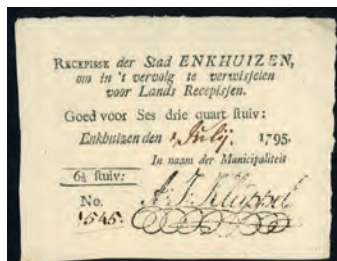 RECEPISSE der Stad ENKHUIZEN,
om in 't vervolg te verwisselen
voor Lands Recepissen.
Goed voor Ses drie quart stuiv:
Enkhuizen den 1 Julij. 1795.
In naam der Municipaliteit
6¾ stuiv:
No. A: J: Kluppel
1545.